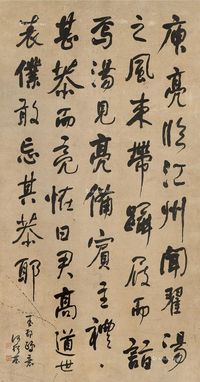 庾亮臨江州聞翟湯
之風束帶躡屐而詣
焉湯見亮備賓主禮
甚恭而亮怪曰君高道世
表僕敢忘其恭耶